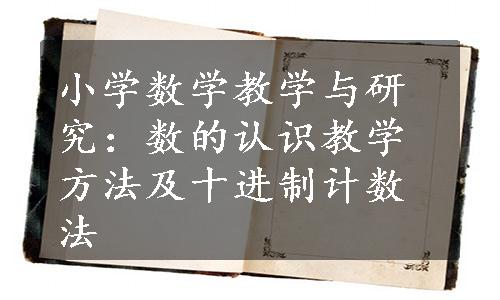 小学数学教学与研
究：数的认识教学
方法及十进制计数
法